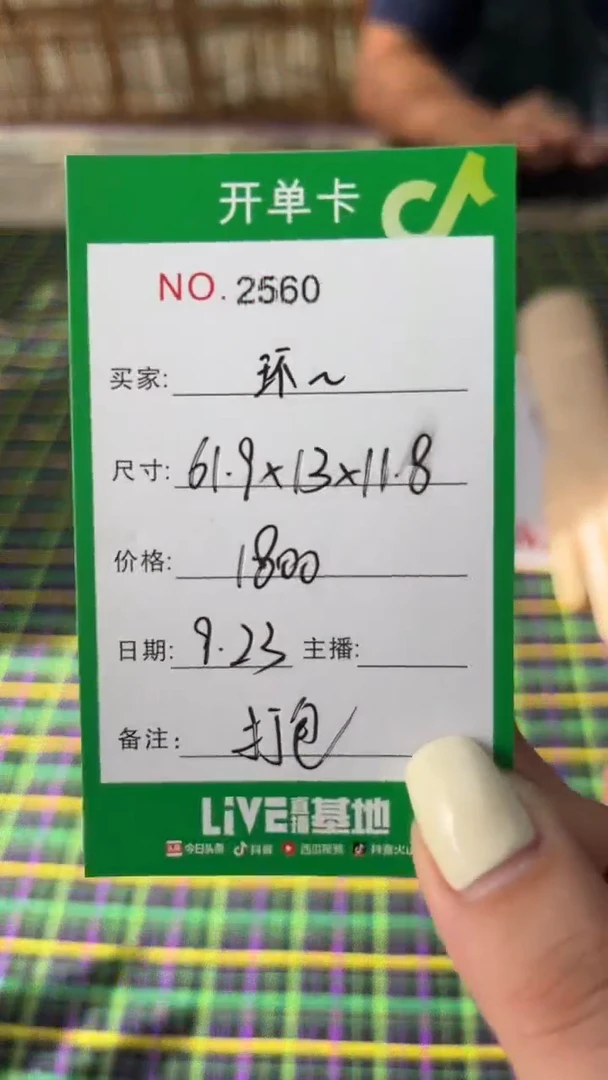 开单卡
NO. 2560
买家: 环~
尺寸: 61.9×13×11.8
价格: 1800
日期: 9.23 主播:
备注: 打包
LiVE直播基地
今日头条 抖音 西瓜视频 抖音火山